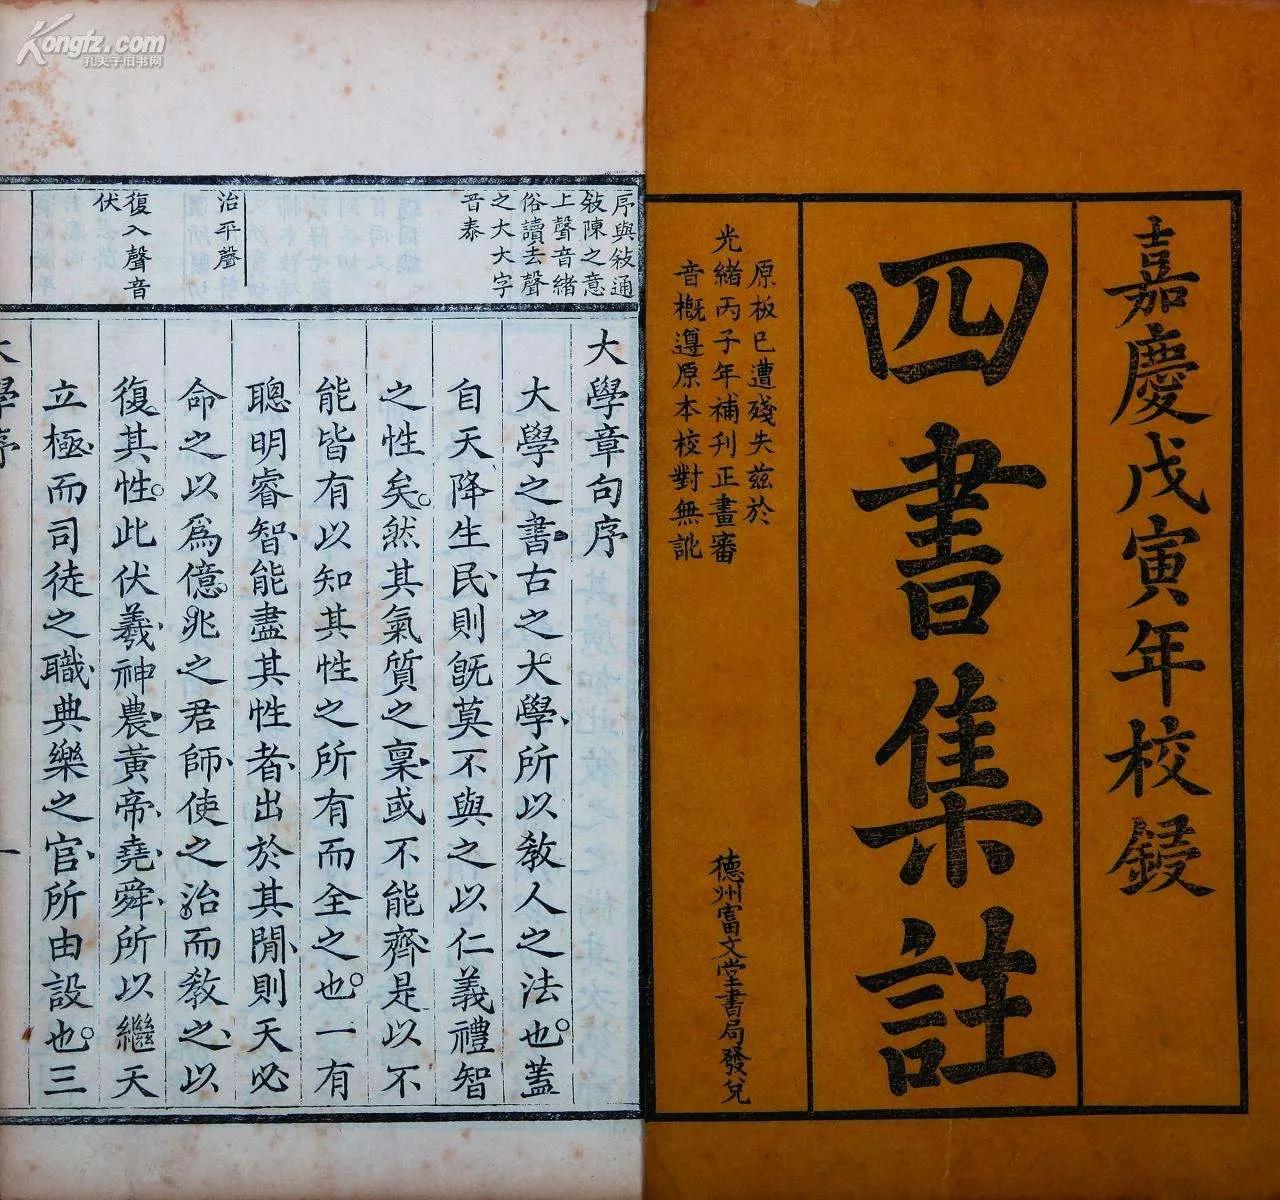 嘉慶戊寅年校鋟
四書集註
原板已遭殘失茲於
光緒丙子年補刊正畫審
音概遵原本校對無訛
德州富文堂書局發兌
序與敘通
敘陳之意
上聲音緒
俗讀去聲
之大大字
音泰
治平聲
復入聲音
伏
大學章句序
大學之書古之大學所以教人之法也蓋
自天降生民則既莫不與之以仁義禮智
之性矣然其氣質之稟或不能齊是以不
能皆有以知其性之所有而全之也一有
聰明睿智能盡其性者出於其閒則天必
命之以爲億兆之君師使之治而教之以
復其性此伏羲神農黃帝堯舜所以繼天
立極而司徒之職典樂之官所由設也三
大學序
一
Kongfz.com
孔夫子旧书网